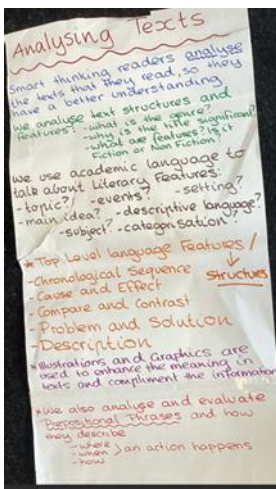 Analysing Texts
Smart thinking readers analyse
the texts that they read, so they
have a better understanding
We analyse text structures and
features? - what is the genre?
- why is the title significant?
- what are features? Is it
Fiction or Non Fiction?
We use academic language to
talk about Literary Features:
- topic? - events? - setting?
- main idea? - descriptive language?
- subject? - categorisation?
* Top Level language Features /
Structures
- Chronological Sequence
- Cause and Effect
- Compare and Contrast
- Problem and Solution
- Description
* Illustrations and Graphics are
used to enhance the meaning in
texts and compliment the information
* We also analyse and evaluate
Prepositional Phrases and how
they describe
- where
- when } an action happens
- how